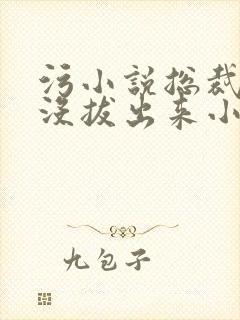 污小说总裁
没拔出来小
九包子